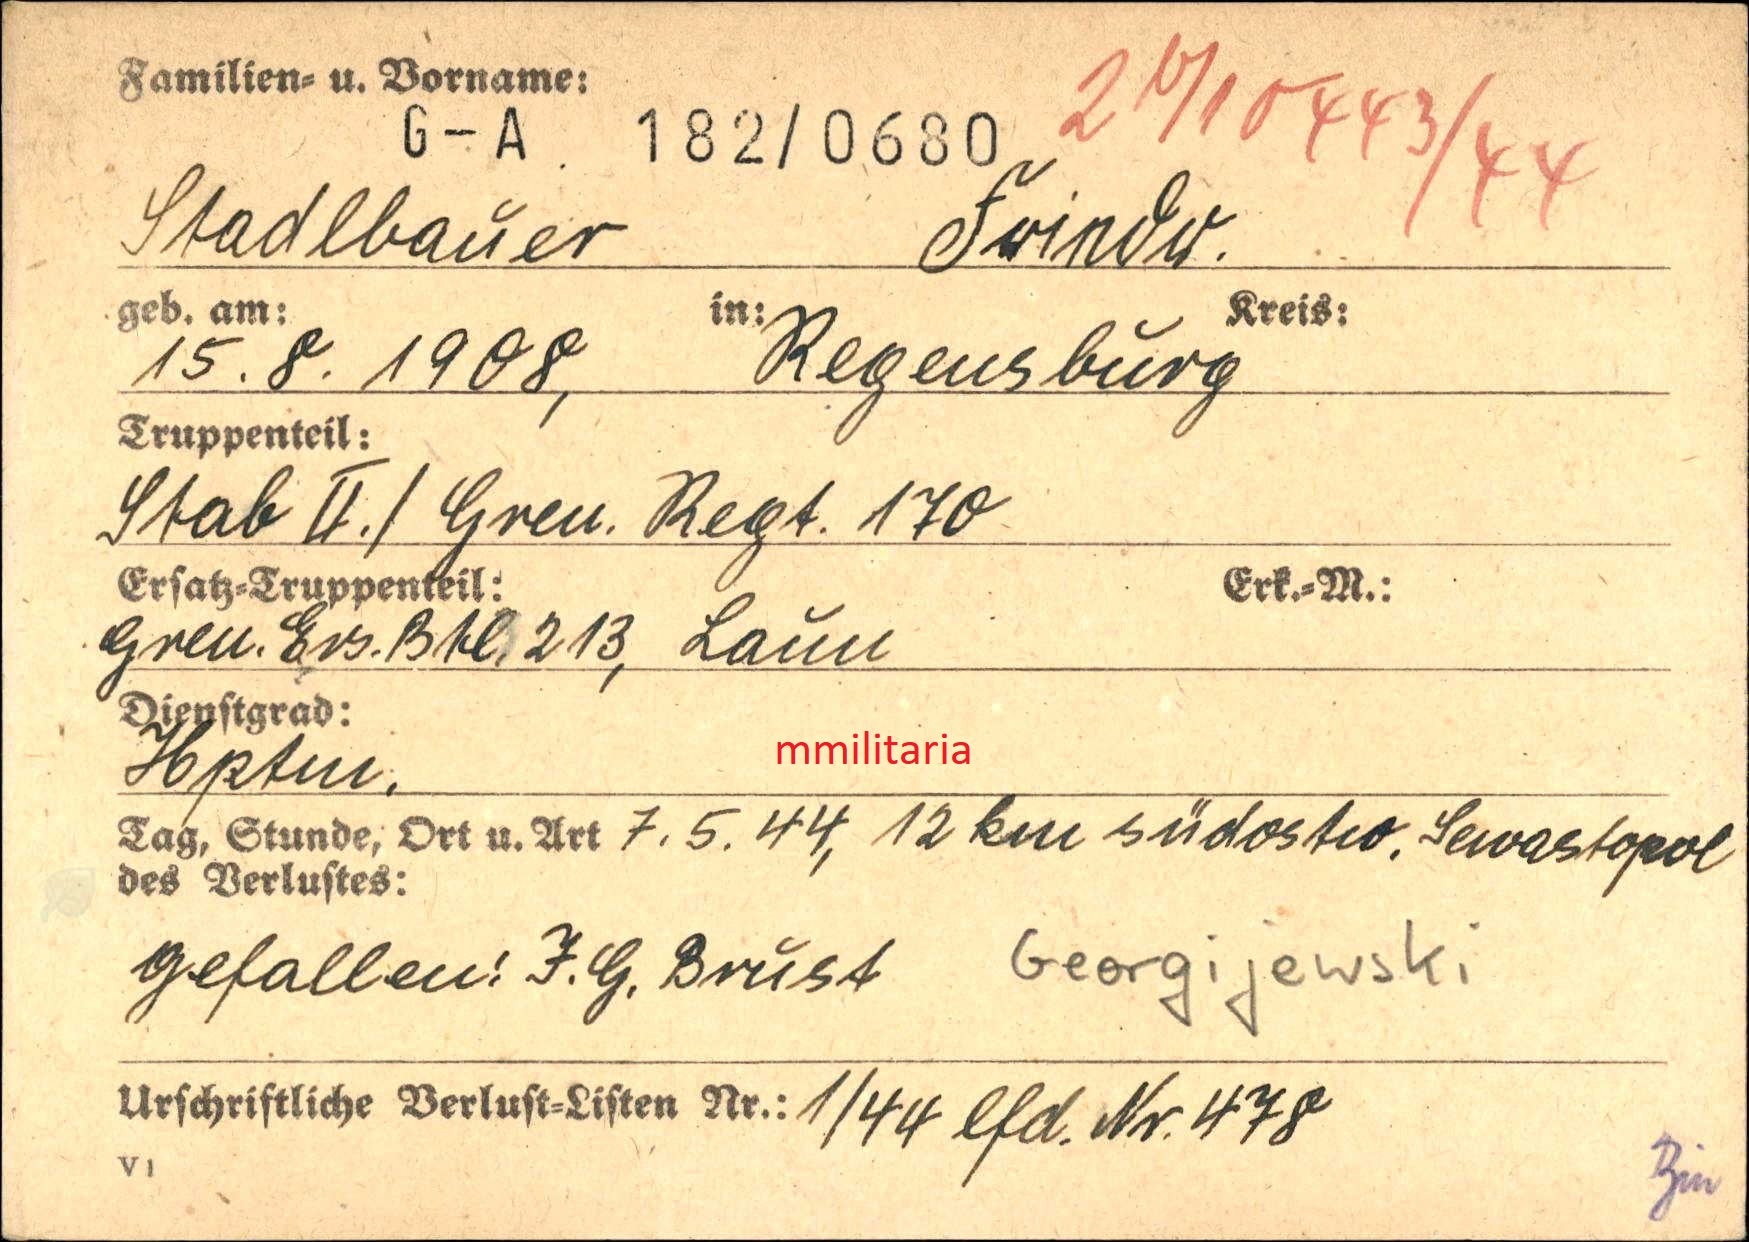 Familien- u. Vorname:
G-A 182/0680
2 b/10443/44
Stadlbauer Friedr.
geb. am: in: Kreis:
15.8.1908, Regensburg
Truppenteil:
Stab II./ Gren. Regt. 170
Ersatz-Truppenteil: Erk.-M.:
Gren. Ers. Btl. 213, Laun
Dienstgrad:
Hptm.
mmilitaria
Tag, Stunde, Ort u. Art 7.5.44, 12 km südostw. Sewastopol
des Verlustes:
gefallen: I.G. Brust Georgijewski
Urschriftliche Verlust-Listen Nr.: 1/44 lfd. Nr. 478
V 1